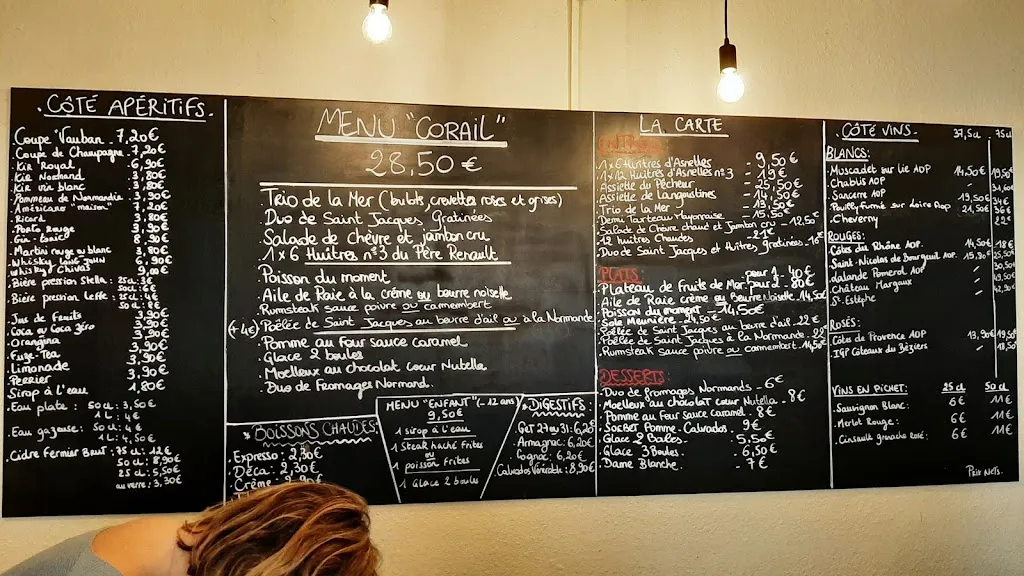 CÔTÉ APÉRITIFS.
Coupe Vauban. 7,20€
Coupe de Champagne. 7,20€
Kir Royal. 6,90€
Kir Normand. 3,80€
Kir vin blanc 3,80€
Pommeau de Normandie 3,80€
Américano "maison"
Ricard
Porto Rouge 3,90€
Gin-tonic 8,90€
Martini rouge ou blanc 3,80€
Whisky
Whisky Chivas 9,00€
Bière pression Stella: 25cl: 3€
Bière pression Leffe: 25cl: 4€
50cl: 8€
Jus de Fruits 3,90€
Coca ou Coca zéro 3,90€
Orangina 3,90€
Fuze-Tea 3,90€
Limonade 3,90€
Perrier 3,90€
Sirop à l'eau 1,80€
Eau plate: 50cl: 3,50€
1L: 4€
Eau gazeuse: 50cl: 4€
1L: 4,50€
Cidre fermier Brut: 75cl: 12€
50cl: 8,90€
25cl: 5,90€
au verre: 3,30€
MENU "CORAIL"
28,50 €
Trio de la Mer (bulots, crevettes roses et grises)
Duo de Saint Jacques Gratinées
Salade de Chèvre et jambon cru
1 x 6 Huîtres n°3 du Père Renault
Poisson du moment
Aile de Raie à la crème ou beurre noisette
Rumsteak sauce poivre ou camembert
(+4€) Poêlée de Saint Jacques au beurre d'ail ou à la Normande
Pomme au Four sauce caramel
Glace 2 boules
Moelleux au chocolat cœur Nutella
Duo de Fromages Normand.
BOISSONS CHAUDES
Expresso: 2,30€
Déca: 2,30€
Crème:
MENU "ENFANT" (-12 ans)
9,50€
1 sirop à l'eau
1 steak haché frites
ou
1 poisson frites
1 Glace 2 boules
DIGESTIFS
Get 27 ou 31: 6,20€
Armagnac: 6,20€
Cognac: 6,20€
Calvados Vénérable: 8,90€
LA CARTE
ENTRÉES
1 x 6 Huîtres d'Asnelles - 9,50€
1 x 12 Huîtres d'Asnelles n°3 - 19€
Assiette du Pêcheur - 25,50€
Assiette de Langoustines - 14,50€
Trio de la Mer - 13,50€
Demi Tourteau Mayonnaise - 15,50€
Salade de Chèvre chaud et Jambon cru - 12,50€
12 huîtres Chaudes - 21€
Duo de Saint Jacques et Huîtres gratinées - 16€
PLATS: pour 1. 40€
Plateau de Fruits de Mer pour 2. 80€
Aile de Raie crème ou Beurre Noisette. 14,50€
Poisson du moment - 14,50€
Sole Meunière - 24,50€
Poêlée de Saint Jacques au beurre d'ail. 22€
Poêlée de Saint Jacques à la Normande. 22€
Rumsteack sauce poivre ou camembert. 14,50€
DESSERTS:
Duo de fromages Normands - 6€
Moelleux au chocolat cœur Nutella. 8€
Pomme au Four sauce Caramel. 8€
Sorbet Pomme Calvados. 9€
Glace 2 Boules. 5,50€
Glace 3 Boules. 6,50€
Dame Blanche. - 7€
CÔTÉ VINS. 37,5cl. 75cl
BLANCS:
Muscadet sur lie AOP 14,50€ 19,50€
Chablis AOP
Sancerre AOP 19,50€ 34€
Pouilly fumé sur Loire AOP 21,50€ 36€
Cheverny 22€
ROUGES:
Côtes du Rhône AOP. 14,50€ 18€
Saint-Nicolas de Bourgueil AOP 15,90€ 25,50€
Lalande Pomerol AOP
Château Margaux
St. Estèphe
ROSÉS:
Côtes de Provence AOP 13,90€ 19,50€
IGP Côteaux du Béziers 18,50€
VINS EN PICHET: 25 cl 50 cl
Sauvignon Blanc: 6€ 11€
Merlot Rouge: 6€ 11€
Cinsault grenache Rosé: 6€ 11€
Prix nets.